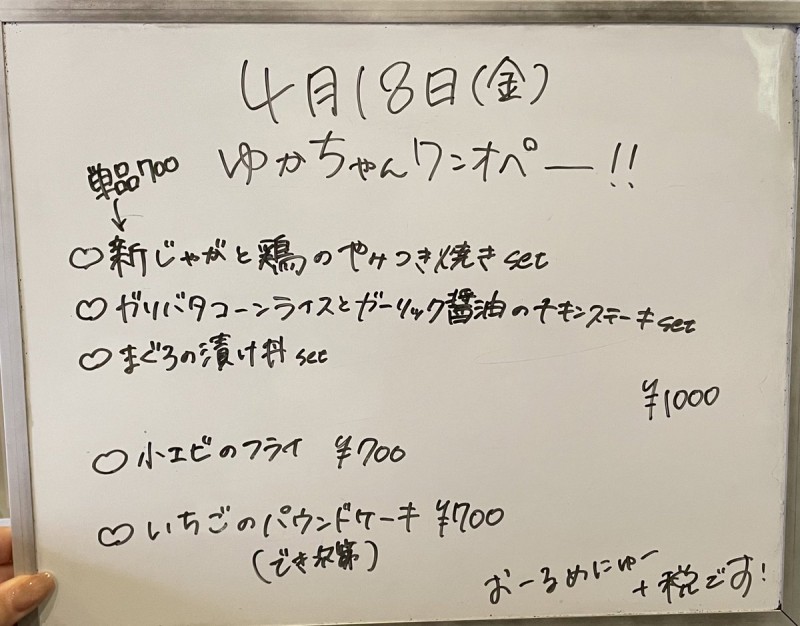 4月18日(金)
ゆかちゃんワンオペー!!
単品700
↓
♡新じゃがと鶏のやみつき焼きset
♡ガリバタコーンライスとガーリック醤油のチキンステーキset
♡まぐろの漬け丼set
¥1000
♡小エビのフライ ¥700
♡いちごのパウンドケーキ ¥700
(でき次第)
おーるめにゅー
+税です!